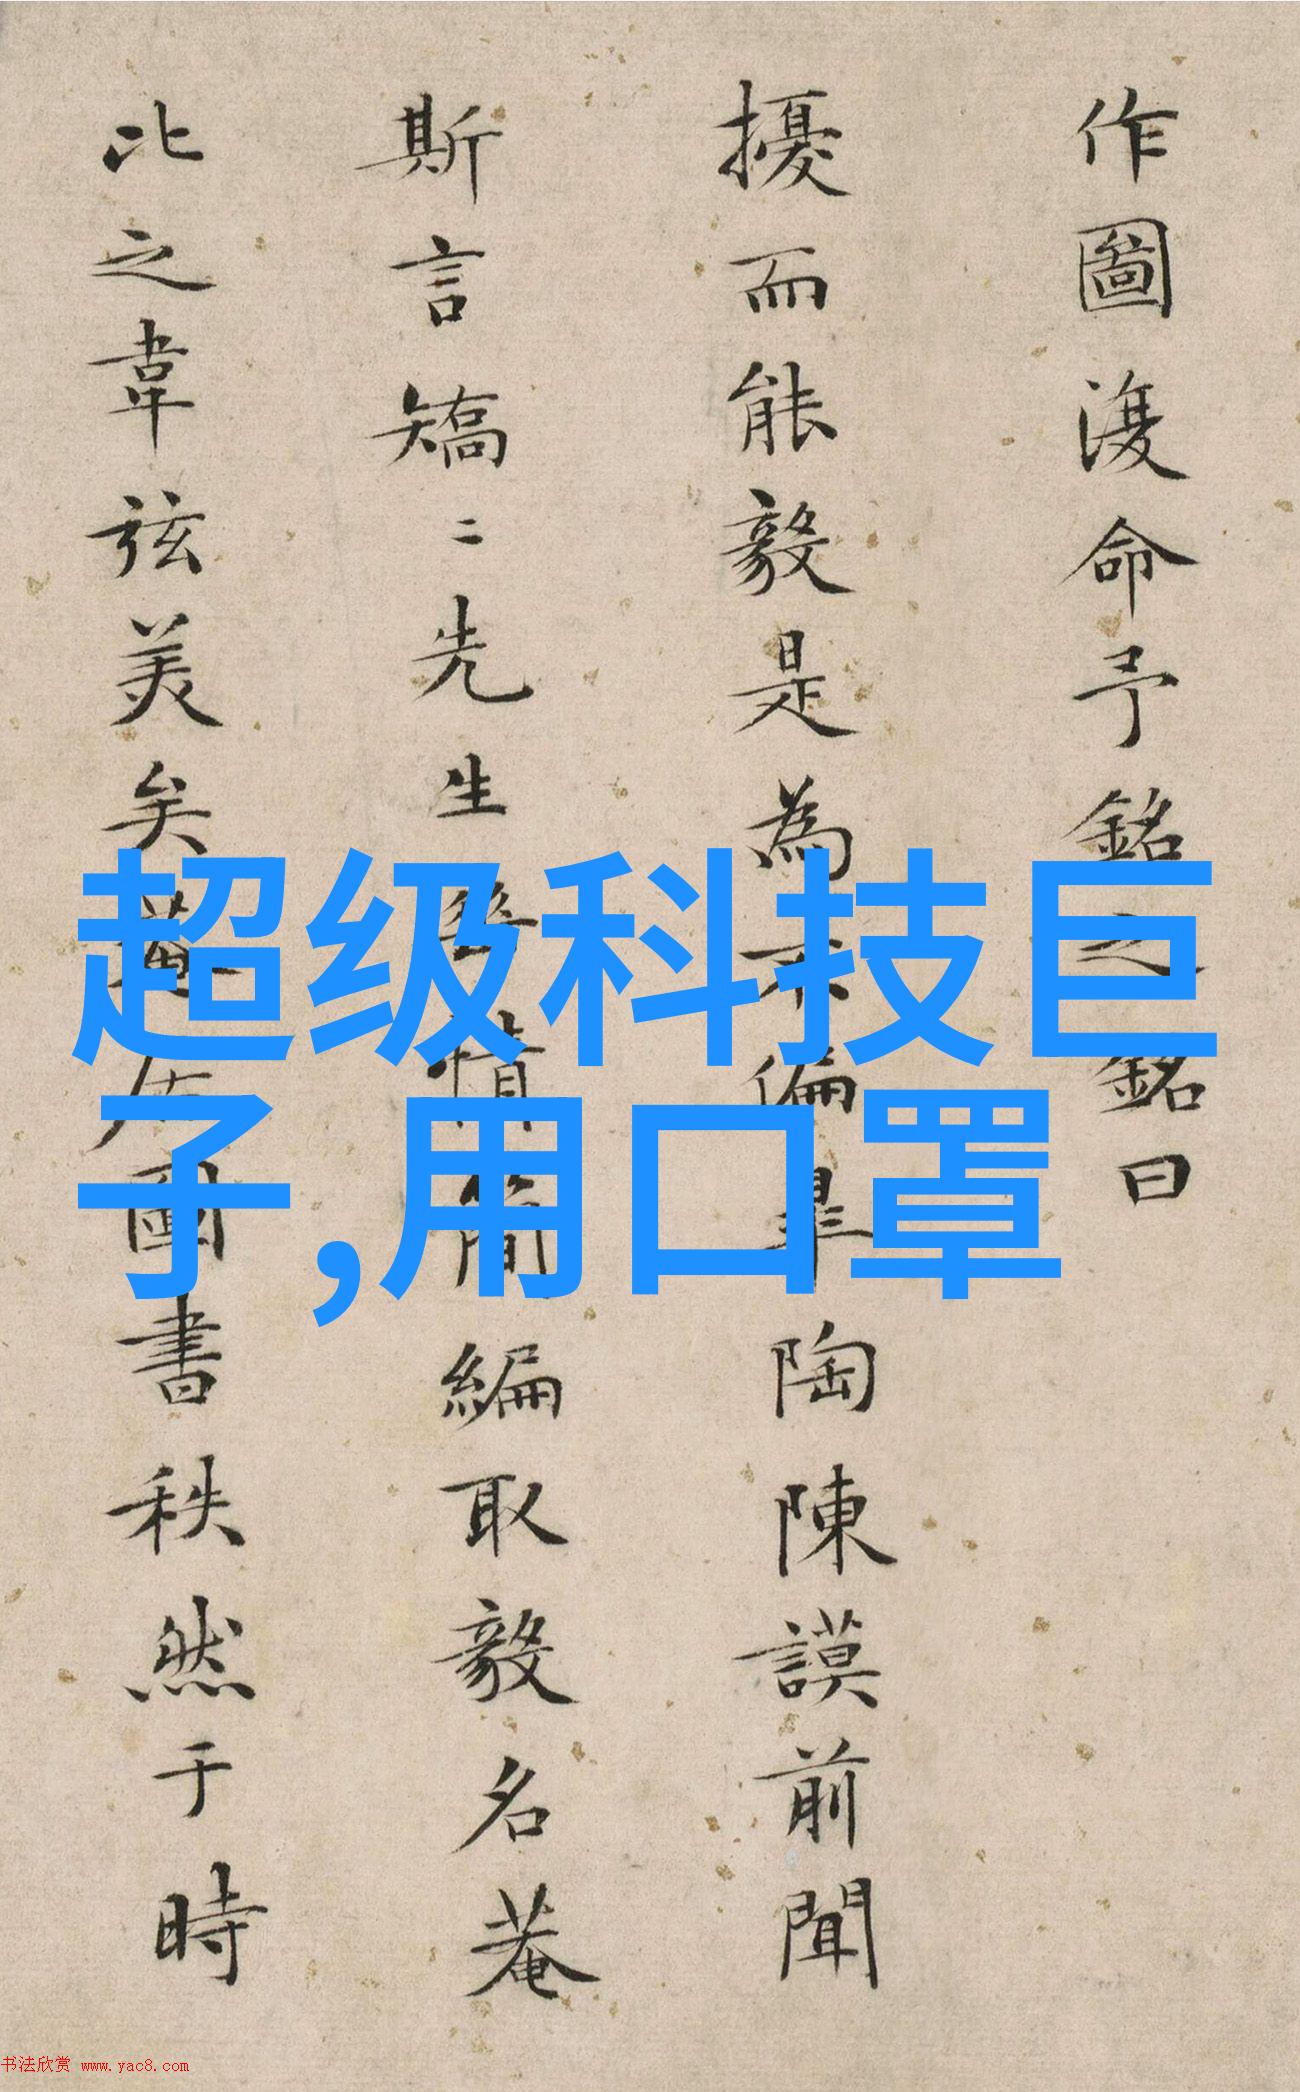 作圖復命予銘之銘曰
擾而能毅是為不偏皋陶陳謨前聞
斯言矯二先生
簡編取毅名菴
比之韋弦美矣
圖書秩然于時
超级科技巨
子,用口罩
书法欣赏 www.yac8.com